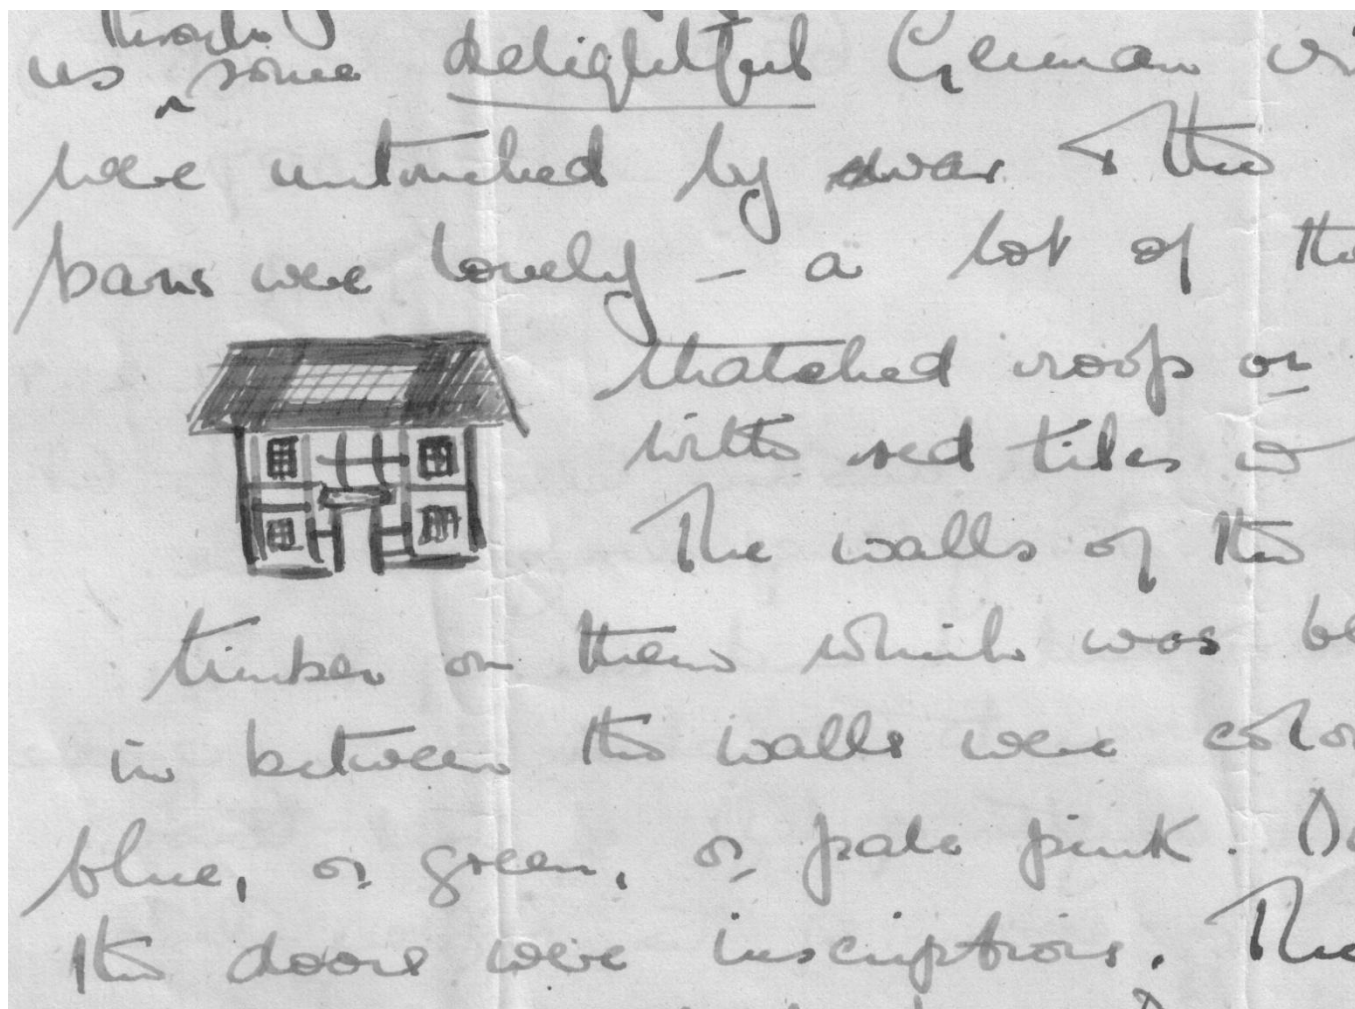 through
us ^ some delightful German vi
were untouched by war & the
barns were lovely - a lot of the
thatched roofs or
with red tiles &
The walls of the
timber on them which was be
in between the walls were colo
blue, or green, or pale pink. O
the doors were inscriptions. The